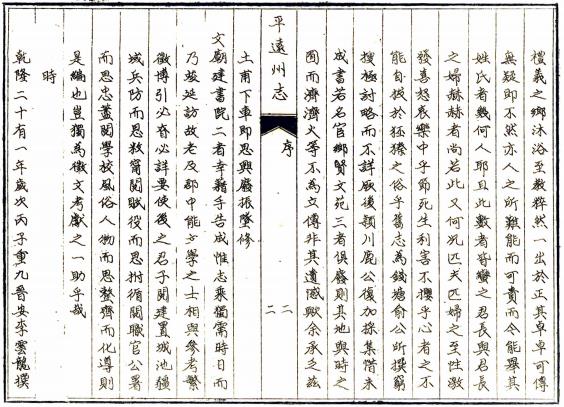 禮義之鄉沐浴至教粹然一出於正其卓卓可傳
無疑即不然亦人之所難能而可貴而今能舉其
姓氏者幾何人耶且此數者皆蠻之君長與君長
之婦赫赫者尚若此又何況匹夫匹婦之至性激
發喜怒哀樂中乎節死生利害不攖乎心者之不
能自拔於狉獉之俗乎舊志為錢塘俞公所撰窮
搜極討略而不詳厥後潁川鹿公復加採集惜未
成書若名宦鄉賢文苑三者俱廢則其地與時之
囿而濟濟火等不為立傳非其遺憾歟余承乏茲
平遠州志
序
二
二
土甫下車即思興廢振墜修
文廟建書院二者幸藉手告成惟志乘獨需時日而
乃延訪故老及郡中能方學之士相與參考繁
徵博引必眘必詳要使後之君子閱建置城池疆
域兵防而思教甯閱賦役而思拊循閱職官公署
而思忠藎閱學校風俗人物而思整齊而化導則
是編也豈獨為徵文考獻之一助乎哉
時
乾隆二十有一年歲次丙子重九晉安李雲龍撰